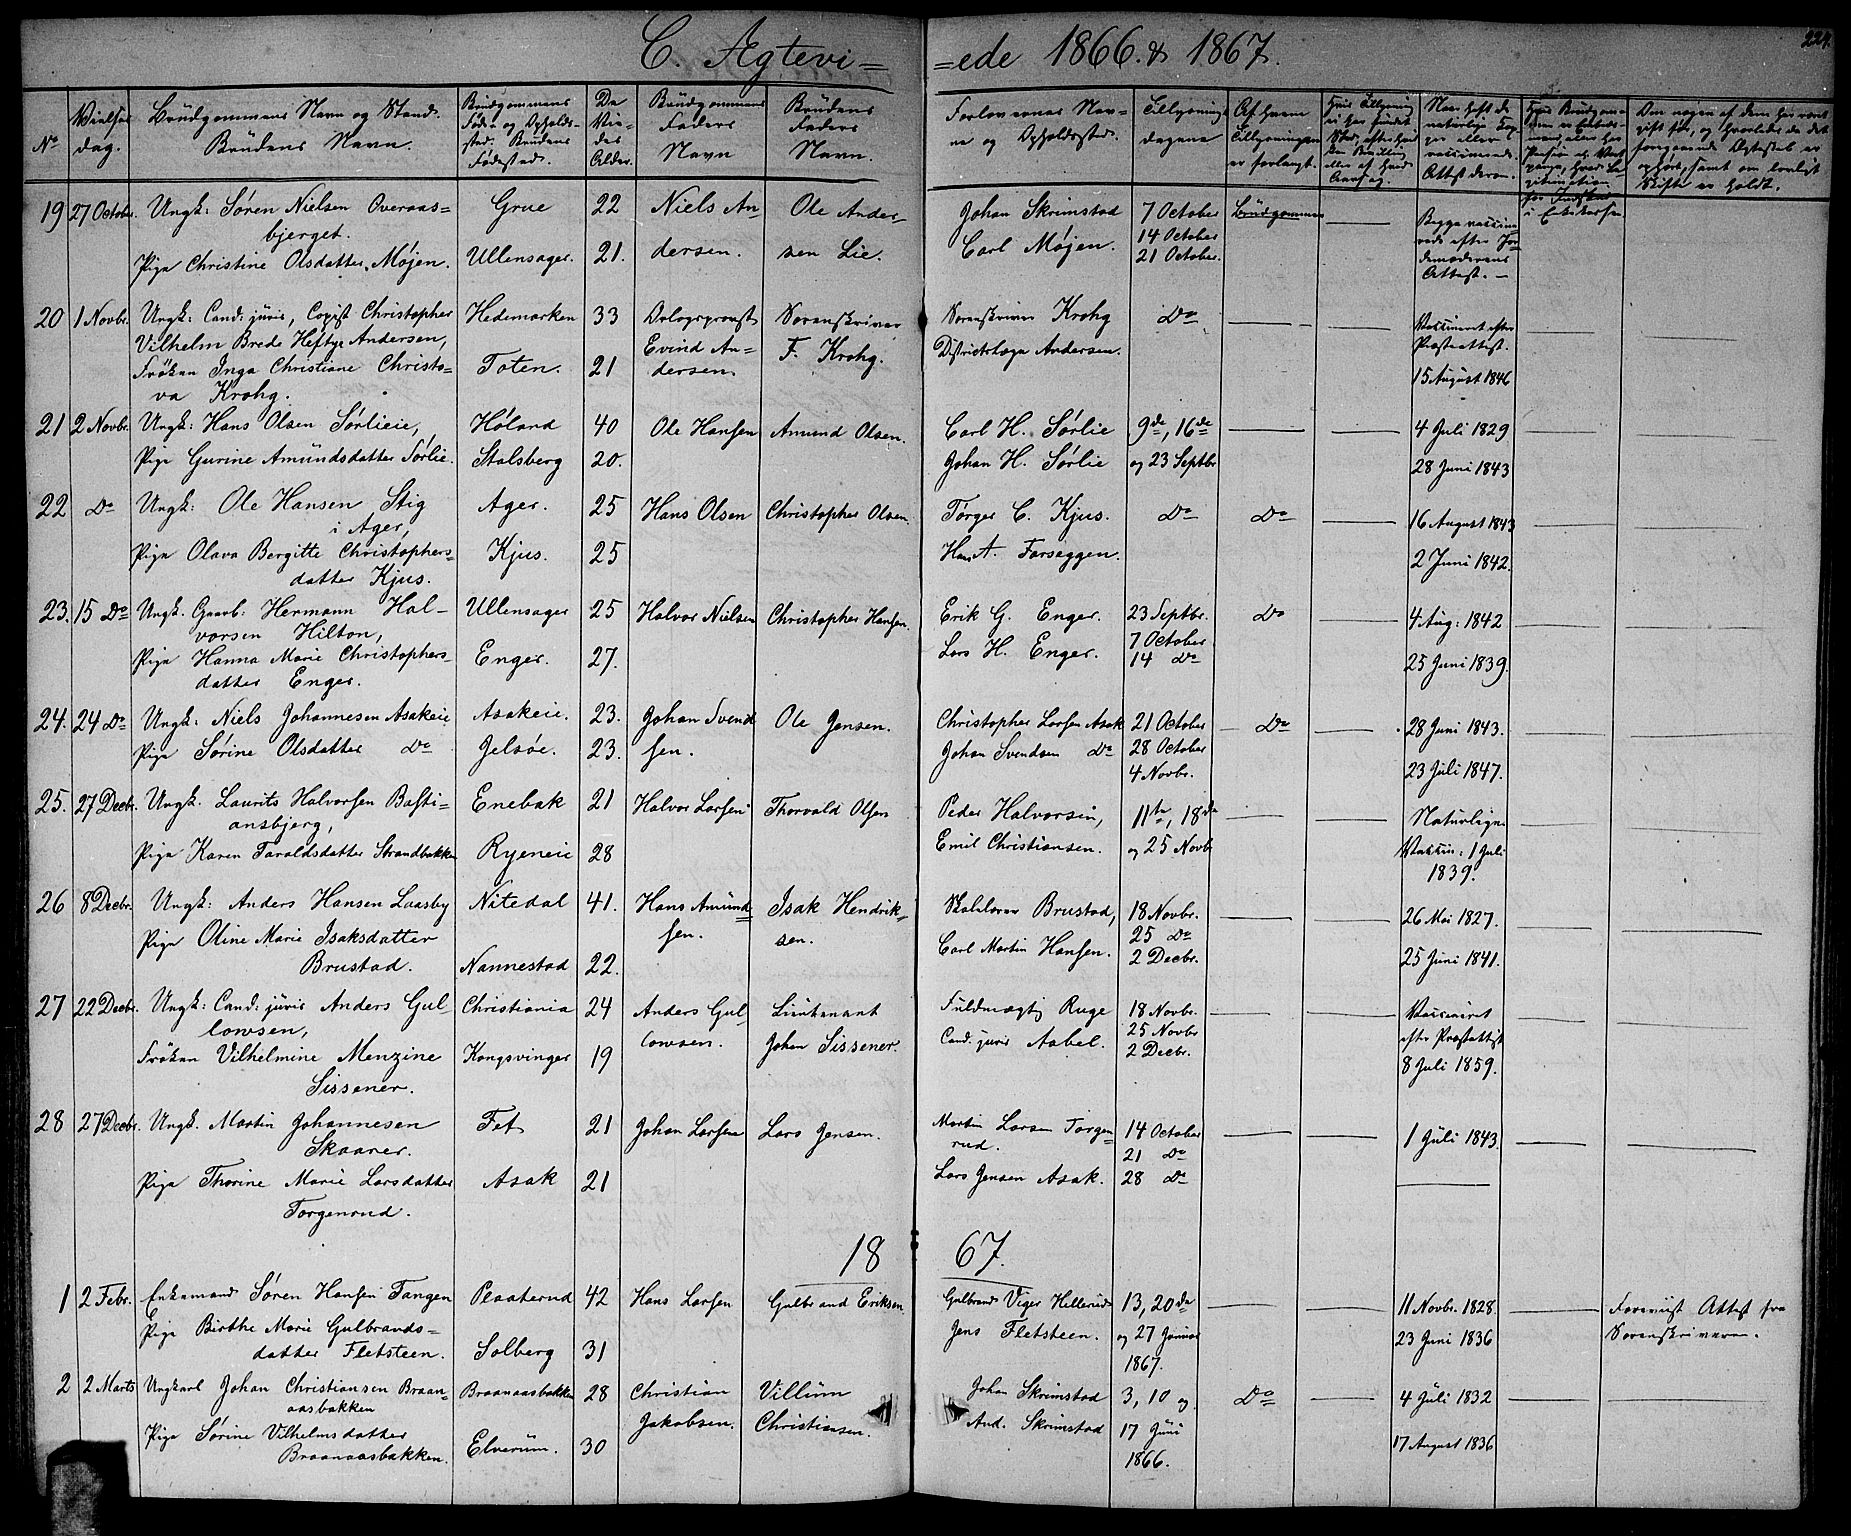 C. Ægtevi= =ede 1866. & 1867.
224.
No
Vielses dag.
Brudgommens Navn og Stand. Brudens Navn.
Brudgommens Føde- og Opholdssted. Brudens Fødested.
De Viedes Alder.
Brudgommens Faders Navn
Brudens Faders Navn.
Forlovernes Navne og Opholdssted.
Tillysningsdagene
Af hvem Tillysningen er forlangt.
19 27 Octobr. Ungk: Søren Nielsen Overaas= Grue 22 Niels An Ole Ander= Johan Skrimstad 7 October Brudgommen
bjerget. Carl Mojen. 14 October
Pige Christine Olsdatter Møjen. Ullensager. 21. dersen. sen Lie. 21 October.
Begge vaccine
rede efter Jor
demoderens
Attest. —
20 1 Novbr. Ungk: Cand: juris, Copist Christopher Hedemarken 33 Dalesprovst Sorenskriver Sorenskriver Krohg Do
Vilhelm Brede Heftye Andersen, Evind An= F. Krohg. Districtslæge Andersen.
Frøken Inga Christiane Christo= Toten. 21 dersen.
va Krohg.
Vaccineret efter
Præsteattest.
15 August 1846
21 2 Novbr. Ungk: Hans Olsen Sørlieie, Høland 40 Ole Hansen Amund Olsen. Carl H. Sørlie 9de, 16de 4 Juli 1829
Pige Gurine Amundsdatter Sørlie. Stalsberg 20. Johan H. Sørlie og 23 Septbr 28 Juni 1843
22 Do Ungk: Ole Hansen Stig Ager. 25 Hans Olsen Christopher Olsen. Torger C. Kjus. Do Do 16 August 1843
i Ager,
Pige Olava Bergitte Christophers= Kjus. 25 Hans A. Farseggen. 2 Juni 1842.
datter Kjus.
23. 15 Do Ungk. Gaarb: Hermann Hal- Ullensager 25 Halvor Nielsen Christopher Hansen. Erik G. Enger. 23 Septbr. Do 4 Aug: 1842
vorsen Hilton, 7 October
Pige Hanna Marie Christophers- Enger. 27. Lars H. Enger. 14 Do 25 Juni 1839.
datter Enger.
24. 24 Do Ungk: Niels Johannesen Asakeie Asakeie. 23. Johan Svend Ole Jensen. Christopher Larsen Asak 21 October Do 28 Juni 1843.
Pige Sørine Olsdatter Do Jelsøe. 23. sen. Johan Svendsen Do 28 October
4 Novbr. 23 Juli 1847.
25. 27 Decbr. Ungk. Laurits Halvorsen Basti- Enebak 21 Halvor Larsen Thorvald Olsen Peder Halvorsen, 11te, 18de Naturlige
ansbjerg,
Pige Karen Taraldsdatter Strandbakken Ryeneie 28 Emil Christiansen. og 25 Novbr Vaccin: 1 Juli
1839.
26 8 Decbr. Ungk: Anders Hansen Laasby Nitedal 41. Hans Amund= Isak Hendrik= Skolelærer Brustad, 18 Novbr. 26 Mai 1827.
Pige Oline Marie Isaksdatter sen. sen. Carl Martin Hansen. 25 Do
Brustad. Nannestad 22. 2 Decbr. 25 Juni 1841.
27 22 Decbr. Ungk: Cand: juris Anders Gul Christiania 24 Anders Gul= Lieutenant Fuldmægtig Ruge 18 Novbr. Vaccineret
lowsen, lowsen. Johan Sissener. Cand. juris Aabel. 25 Novbr efter Præsteattest
Frøken Vilhelmine Menzine Kongsvinger 19 2 Decbr. 8 Juli 1859.
Sissener.
28 27 Decbr. Ungk. Martin Johannesen Fet 21 Johan Larsen Lars Jensen. Martin Larsen Torgen= 14 October 1 Juli 1843.
Skaarer. rud. 21 Do
Pige Thorine Marie Larsdatter Asak 21 Lars Jensen Asak. 28 Do
Torgenrud.
18 67.
1 2 Febr. Enkemand Søren Hansen Tangen Plaaterud 42 Hans Larsen Gulbrand Eriksen Gulbrand Viger Hellerud 13, 20de 11 Novbr. 1828. Forevist Attest fra
Pige Birthe Marie Gulbrands= Jens Fletsteen. og 27 Januar 23 Juni 1836 Sorenskriveren.
datter Fletsteen. Solberg 31 1867.
2 2 Marts Ungkarl Johan Christiansen Braan= Braanaasbakken 28 Christian Villum Johan Skrimstad 3, 10 og Do 4 Juli 1832
aasbakken Jakobsen. Christiansen. And. Skrimstad 17 Juni
Pige Sørine Vilhelmsdatter Elverum. 30 1866. 17 August 1836
Braanaasbakken.